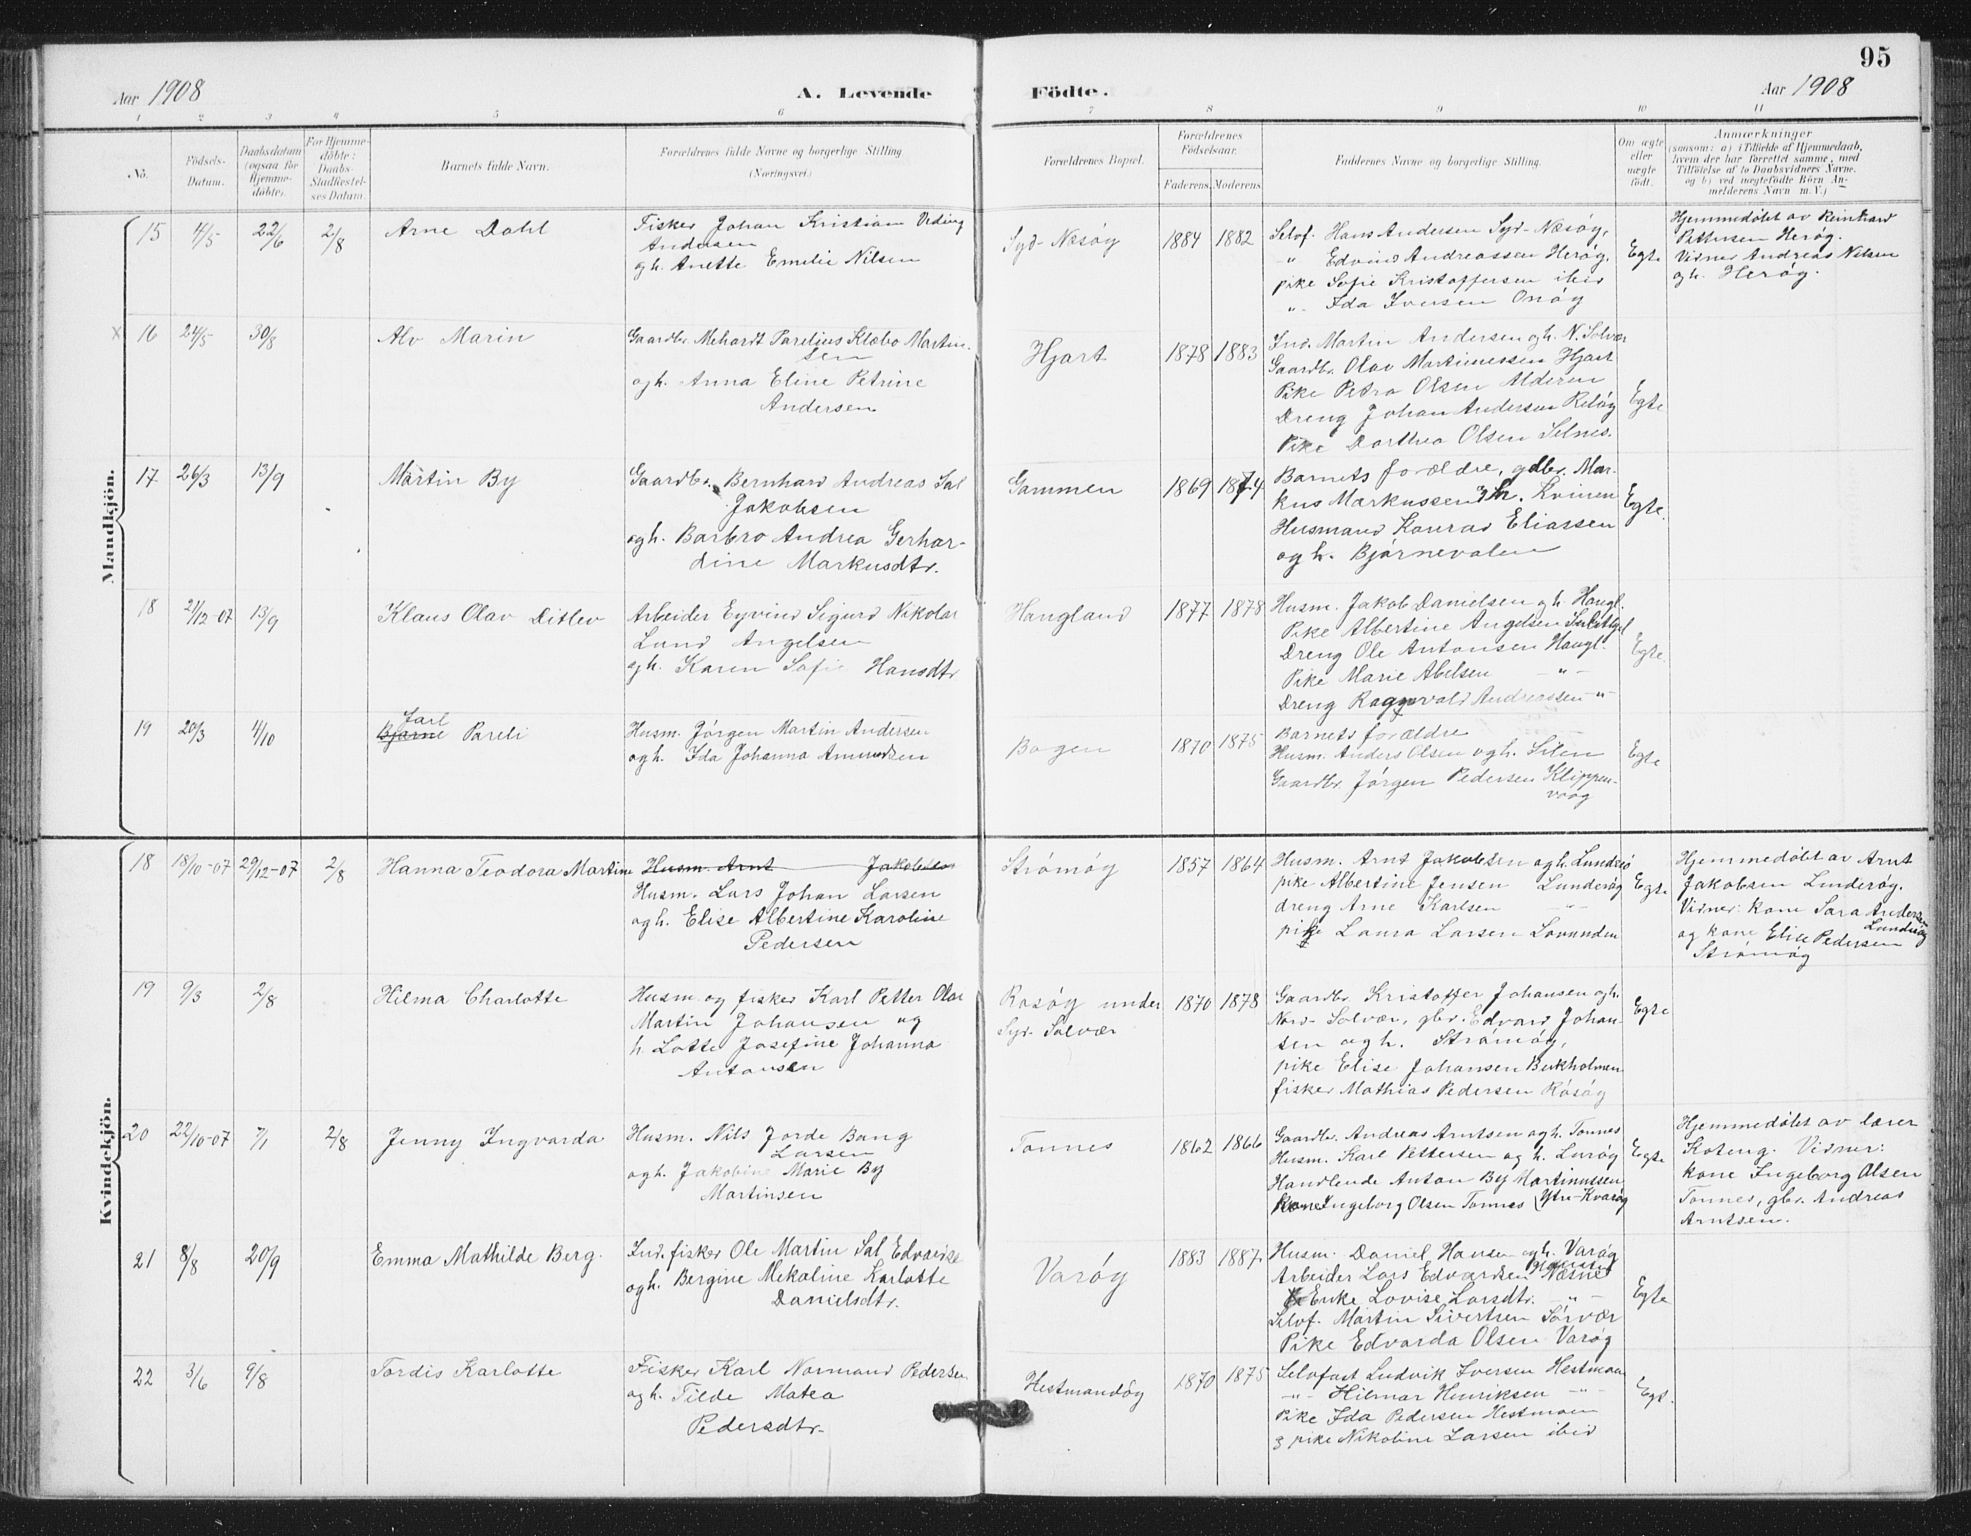 95
Aar 1908
A. Levende
Födte.
Aar 1908
1 2 3 4 5 6 7 8 9 10 11
No.
Födsels-
Datum.
Daabsdatum
(ogsaa for
Hjemme-
döbte).
For Hjemme-
döbte:
Daabs-
Stadfæstel-
ses Datum.
Barnets fulde Navn.
Forældrenes fulde Navne og borgerlige Stilling
(Næringsvei.)
Forældrenes Bopæl.
Forældrenes
Födselsaar.
Faderens. Moderens.
Faddernes Navne og borgerlige Stilling.
Om ægte
eller
uægte
födt.
Anmærkninger
(saasom: a) i Tilfælde af Hjemmedaab,
hvem der har forrettet samme, med
Tilföielse af to Daabsvidners Navne.
og b) ved uægtefödte Börn An-
melderens Navn m. V.)
Mandkjön.
15 4/5 22/6 2/8
Arne Dahl
Fisker Johan Kristian Veding
Andersen
og h. Anette Emelie Nilsen
Syd-Næsöy
1884 1882
Selvf. Hans Andersen Syd-Næsöy,
" Edvind Andreassen Heröy,
pike Sofie Kristoffersen ibid
" Ida Iversen Onöy
Egte
Hjemmedöbt av Reinhard
Pettersen Heröy.
Vidner Andreas Nilsen
og h. Heröy.
x 16 24/5 30/8
Alv Marin
Gaardbr. Mehardt Parelius Klæbo Martin-
sen
og h. Anna Eline Petrine
Andersen
Hjart
1878 1883
Ind. Martin Andersen og h. N. Solvær
Gaardbr. Olav Martinussen Hjart
Pike Petra Olsen Alderen
Dreng Johan Andersen Relöy
Pike Dorthea Olsen Selnes.
Egte
17 26/3 13/9
Martin By
Gaardbr. Bernhard Andreas Sal
Jakobsen
og h. Barbro Andrea Gerhar-
dine Markusdtr.
Gammen
1869 1874
Barnets forældre, gdbr. Mar-
kus Markussen og h. Kvinen
Husmand Konrad Eliassen
og h. Bjørnevalen
Egte.
18 21/12-07 13/9
Klaus Olav Ditlev
Arbeider Eyvind Sigurd Nikolai
Lund Angelsen
og h. Karen Sofie Hansdtr
Haugland
1877 1878
Husm. Jakob Danielsen og h. Haugl.
Pike Albertine Angelsen
Dreng Ole Antonsen Haugl.
Pike Marie Abelsen -"-
Dreng Ragnvald Andreassen -"-
Egte.
19 20/3 4/10
Jarl
Bjarne Pareli
Husm. Jörgen Martin Andersen
og h. Ida Johanna Amundsen
Bogen
1870 1875
Barnets forældre
Husm. Anders Olsen og h. Silen
Gaardbr. Jörgen Pedersen Klippen-
vaag
Egte
Kvindekjön.
18 18/10-07 29/12-07 2/8
Hanna Teodora Martine
Husm. Arnt Jakobsen
Husm. Lars Johan Larsen
og h. Elise Albertine Karoline
Pedersen
Strömöy
1857 1864
Husm. Arnt Jakobsen og h. Lunderö
pike Albertine Jensen Lunderöy
dreng Arne Karlsen -"-
pike Laura Larsen Lovunden
Egte
Hjemmedöbt av Arnt
Jakobsen Lunderöy.
Vidner: kone Sara Andersen
Lunderöy
og kone Elise Pedersen
Strömöy
19 9/3 2/8
Hilma Charlotte
Husm. og fisker Karl Petter Olav
Martin Johansen og
h. Lotte Josefine Johanna
Antonsen
Rosöy under
Syd-Solvær
1870 1878
Gaardbr. Kristoffer Johansen og h.
Nord-Solvær, gbr. Edvard Johan-
sen og h. Strömöy,
pike Elise Johansen Bukholmen
fisker Mathias Pedersen Rösöy
Egte
20 22/10-07 7/1 2/8
Jenny Ingvarda
Husm. Nils Jorde Bang
Larsen
og h. Jakobine Marie By
Martinsen
Tonnes
1862 1866
Gaardbr. Andreas Arntsen og h. Tonnes
Husm. Karl Pettersen og h. Luröy
Handlende Anton By Martinussen
Kone Ingeborg Olsen Tonnes (Ytre-Kvaröy
Egte
Hjemmedöbt av lærer
Koteng. Vidner:
kone Ingeborg Olsen
Tonnes, gbr. Andreas
Arntsen.
21 8/8 20/9
Emma Mathilde Berg.
Ind. fisker Ole Martin Sal Edvardsen
og h. Bergine Mekaline Karlotte
Danielsdtr.
Varöy
1883 1887.
Husm. Daniel Hansen og h. Varöy
Arbeider Lars Edvardsen Næsne
Enke Lovise Larsdtr. -"-
Selvf. Martin Sivertsen Sörvær
Pike Edvarda Olsen Varöy
Egte
22 3/6 9/8
Tordis Karlotte
Fisker Karl Normand Pedersen
og h. Tilde Matea
Pedersdtr.
Hestmandöy
1870 1875
Selvfast Ludvik Iversen Hestmoen
-"- Hilmar Henriksen -"-
Pike Ida Pedersen Hestmoen
& pike Nikoline Larsen ibid
Egt.